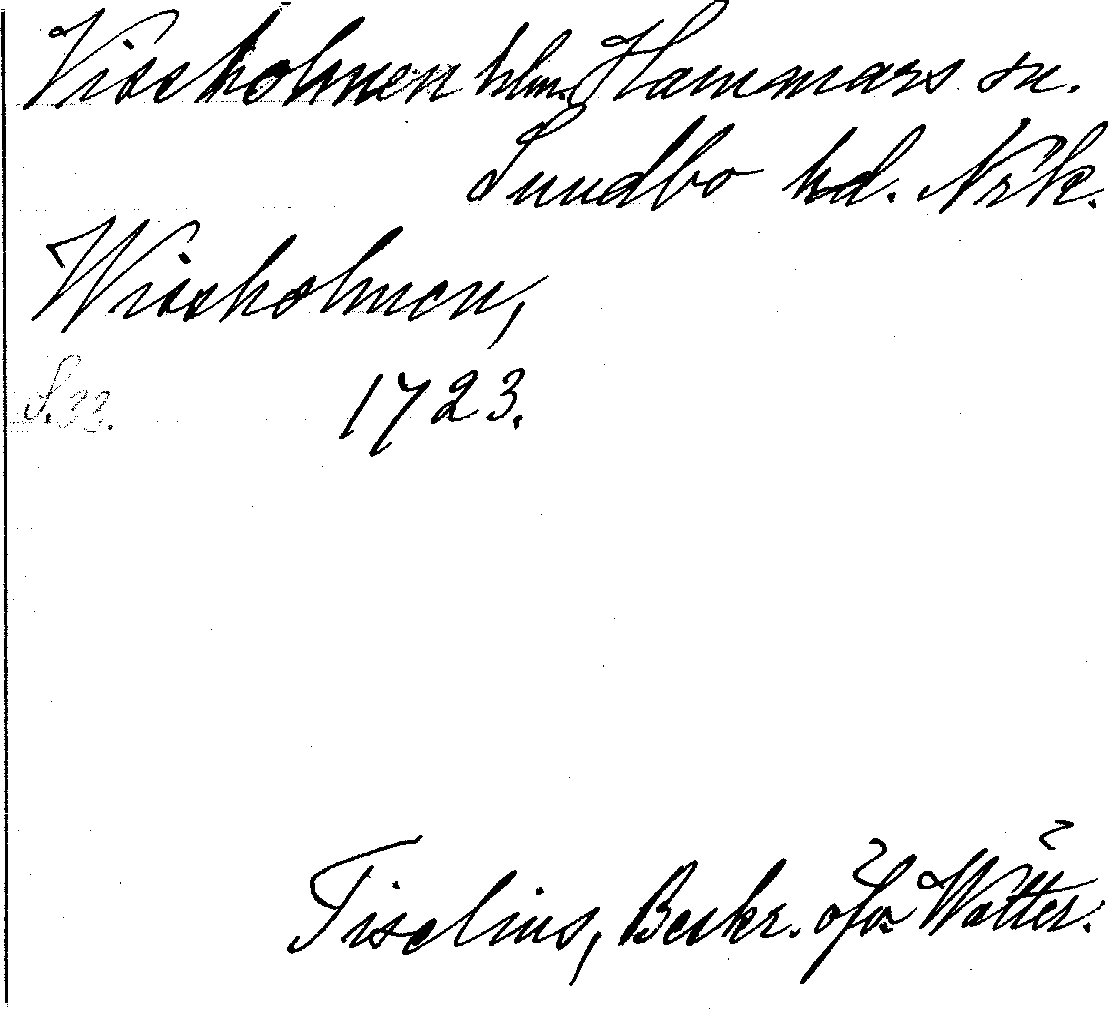 Vissholmen hlm. Hammars sn.
Sundbo hd. Nrk.
Wissholmen,
S. 33. 1723.
Tiselius, Beskr. öfr Wätter.